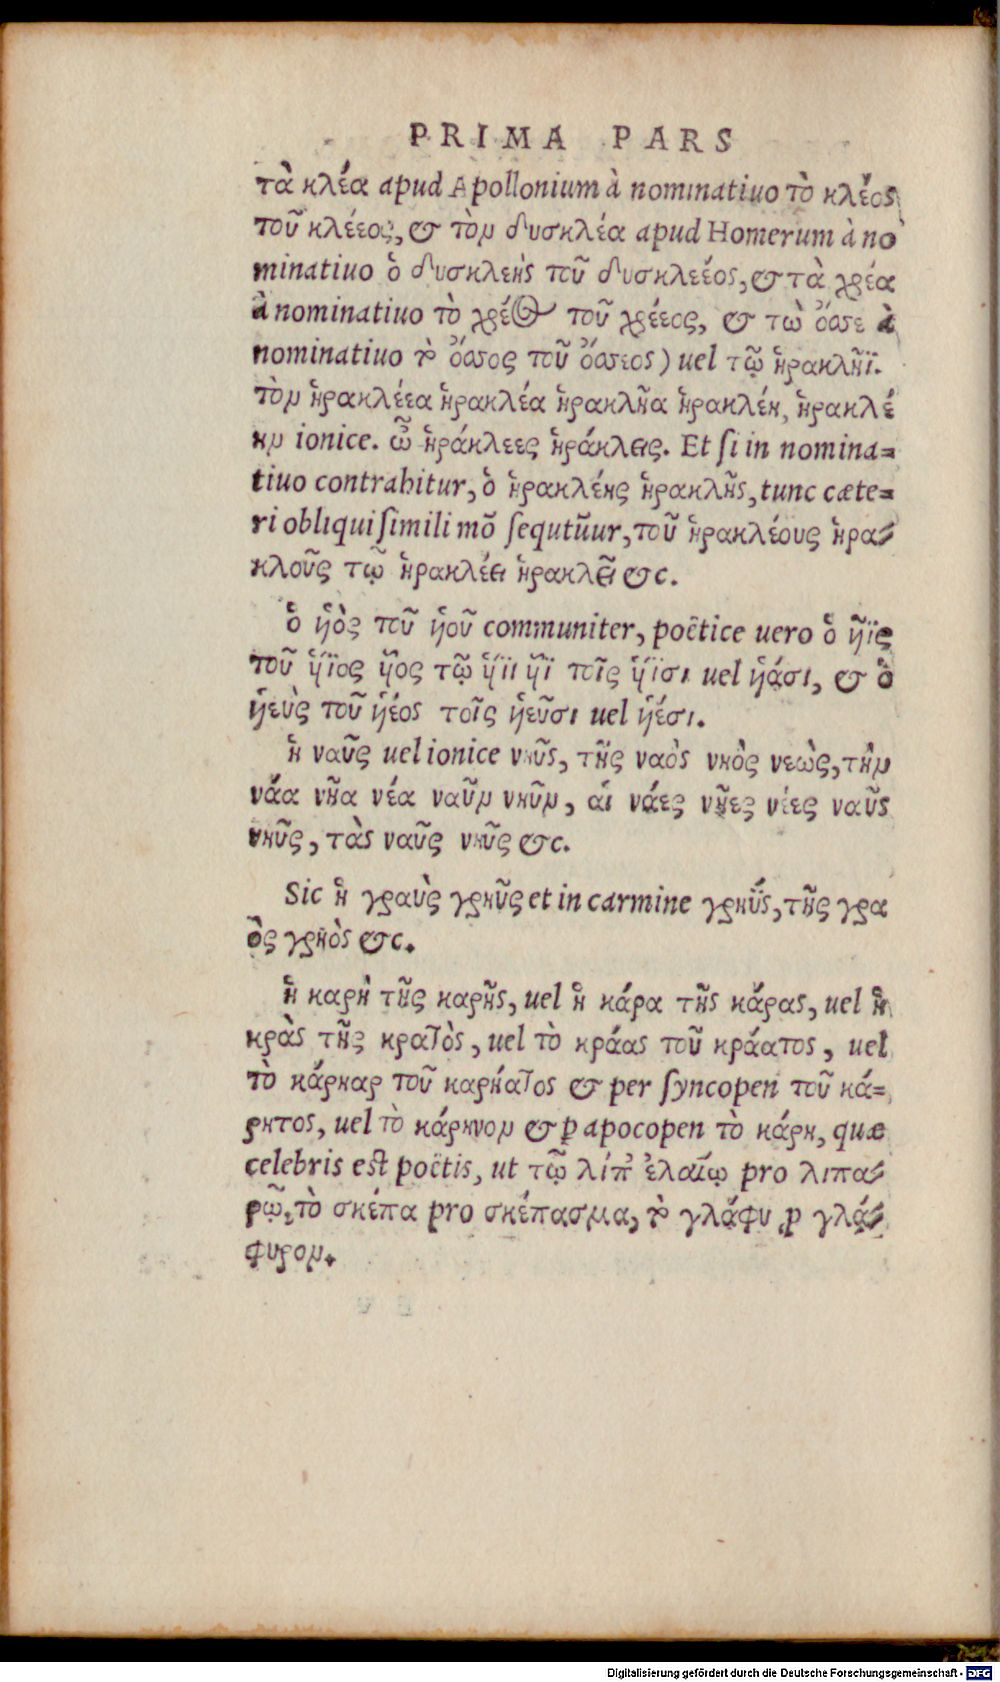 PRIMA PARS
τὰ κλέα apud Apollonium à nominatiuo τὸ κλέος
τοῦ κλέεος, & τὸν δυσκλέα apud Homerum à no
minatiuo ὁ δυσκλεὴς τοῦ δυσκλεέος, & τὰ χρέα
à nominatiuo τὸ χρέος τοῦ χρέεος, & τὼ ὄσσε à
nominatiuo τὸ ὄσσος τοῦ ὄσσεος) uel τῷ ἡρακλῆϊ.
τὸν ἡρακλέεα ἡρακλέα ἡρακλῆα ἡρακλέη, ἡρακλέ
ην ionice. ὦ ἡράκλεες ἡράκλεις. Et ſi in nomina=
tiuo contrahitur, ὁ ἡρακλέης ἡρακλῆς, tunc cæte=
ri obliqui ſimili mõ ſequũtur, τοῦ ἡρακλέους ἡρα-
κλοῦς τῷ ἡρακλέει ἡρακλεῖ &c.
ὁ ὑὸς τοῦ ὑοῦ communiter, poëtice uero ὁ ὗϊς
τοῦ ὕϊος ὗος τῷ ὕϊι ὗϊ τοῖς ὕϊσι uel ὑάσι, & ὁ
ὑεὺς τοῦ ὑέος τοῖς ὑεῦσι uel ὑέσι.
ἡ ναῦς uel ionice νηῦς, τῆς ναὸς νηὸς νεὼς, τὴν
νάα νῆα νέα ναῦν νηῦν, αἱ νάες νῆες νέες ναῦς
νηῦς, τὰς ναῦς νηῦς &c.
Sic ἡ γραὺς γρηῦς et in carmine γρηῢς, τῆς γρα
ὸς γρηὸς &c.
ἡ καρὴ τῆς καρῆς, uel ἡ κάρα τῆς κάρας, uel ἡ
κρὰς τῆς κρατὸς, uel τὸ κράας τοῦ κράατος, uel
τὸ κάρηαρ τοῦ καρήατος & per ſyncopen τοῦ κά-
ρητος, uel τὸ κάρηνον & ꝑ apocopen τὸ κάρη, quæ
celebris est poëtis, ut τῷ λίπ' ἐλαίῳ pro λιπα-
ρῷ, τὸ σκέπα pro σκέπασμα, τὸ γλάφυ ꝓ γλά-
φυρον.
Digitalisierung gefördert durch die Deutsche Forschungsgemeinschaft - DFG